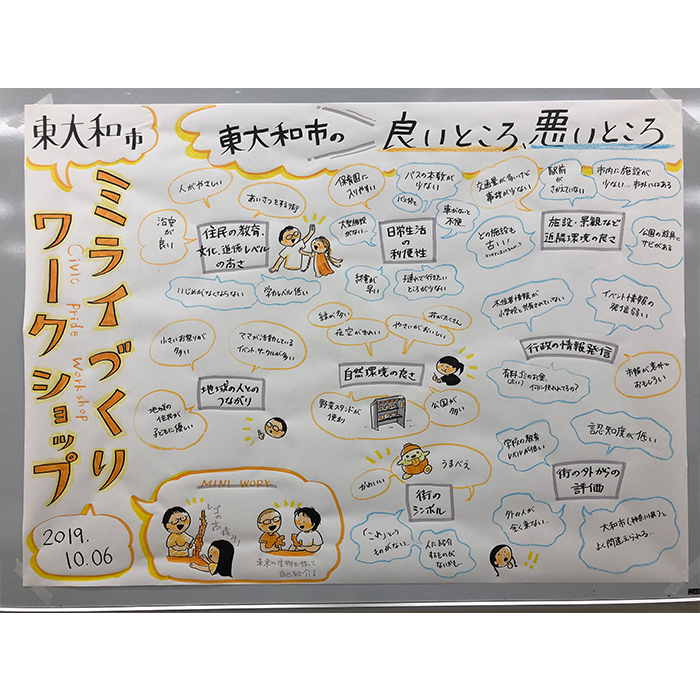 東大和市
ミライづくり
ワークショップ
Civic Pride Workshop
2019.
10.06
東大和市の
良いところ、悪いところ
人がやさしい
あいさつをする街
治安
が
良い
住民の教育、
文化、道徳レベル
の高さ
いじめがなくならない
学力レベル低い
保育園に
入りやすい
バスの本数が
少ない
大型施設
がない…
車がないと
不便
日常生活
の
利便性
終電が
早い
交通量が多いけど
事故が少ない
駅前
が
さかえていない
市内に施設が
少ない…市外にはある
どの施設も
古い!
施設・景観など
近隣環境の良さ
公園の遊具に
サビがある
小さいお祭りが
多い
ママが活動している
イベント・サークルが多い
地域の人との
つながり
地域の
住民が
子どもに優しい
緑が多い
夜空がきれい
やさいがおいしい
自然環境の良さ
野菜スタンドが
便利
公園が
多い
小学校と共有されていない
イベント情報の
発信弱い
行政の情報発信
市報が意外と
おもしろい
学校の教育
レベルが低い
認知度が低い
街の外からの
評価
外の人が
全く来ない…
大和市(神奈川県)と
よく間違えられる…
かわいい
うまべえ
街の
シンボル
「これ」という
ものがない…
人に紹介
するものが
ないかも…
MINI WORK
レゴの
未来の建物を作って
自己紹介!